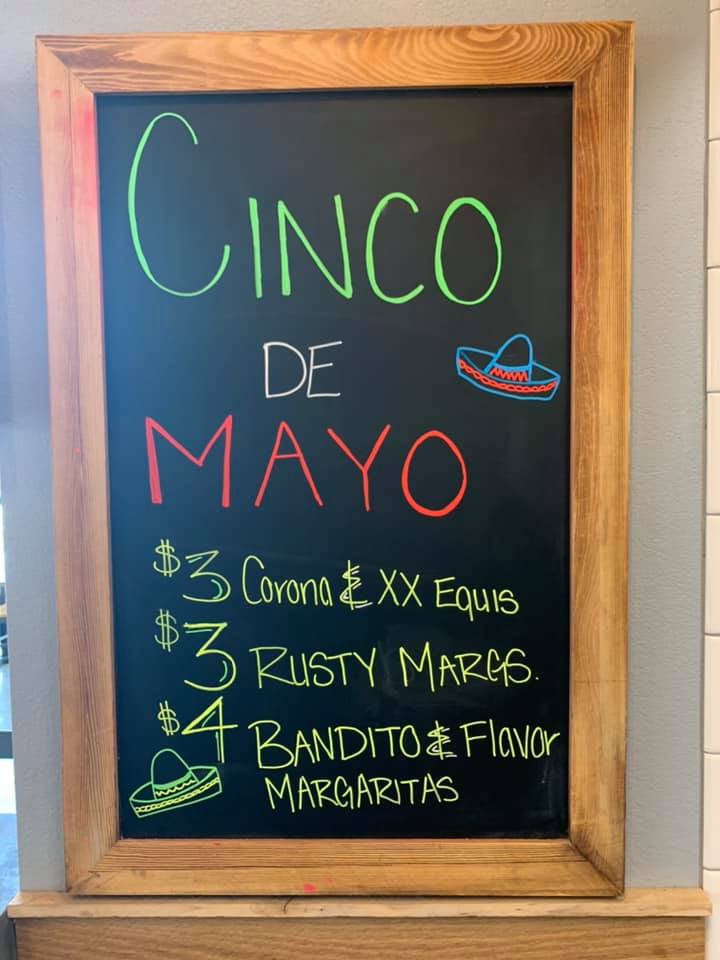 CINCO
DE
MAYO
$3 Corona & XX EQUIS
$3 RUSTY MARGS.
$4 BANDITO & Flavor
MARGARITAS